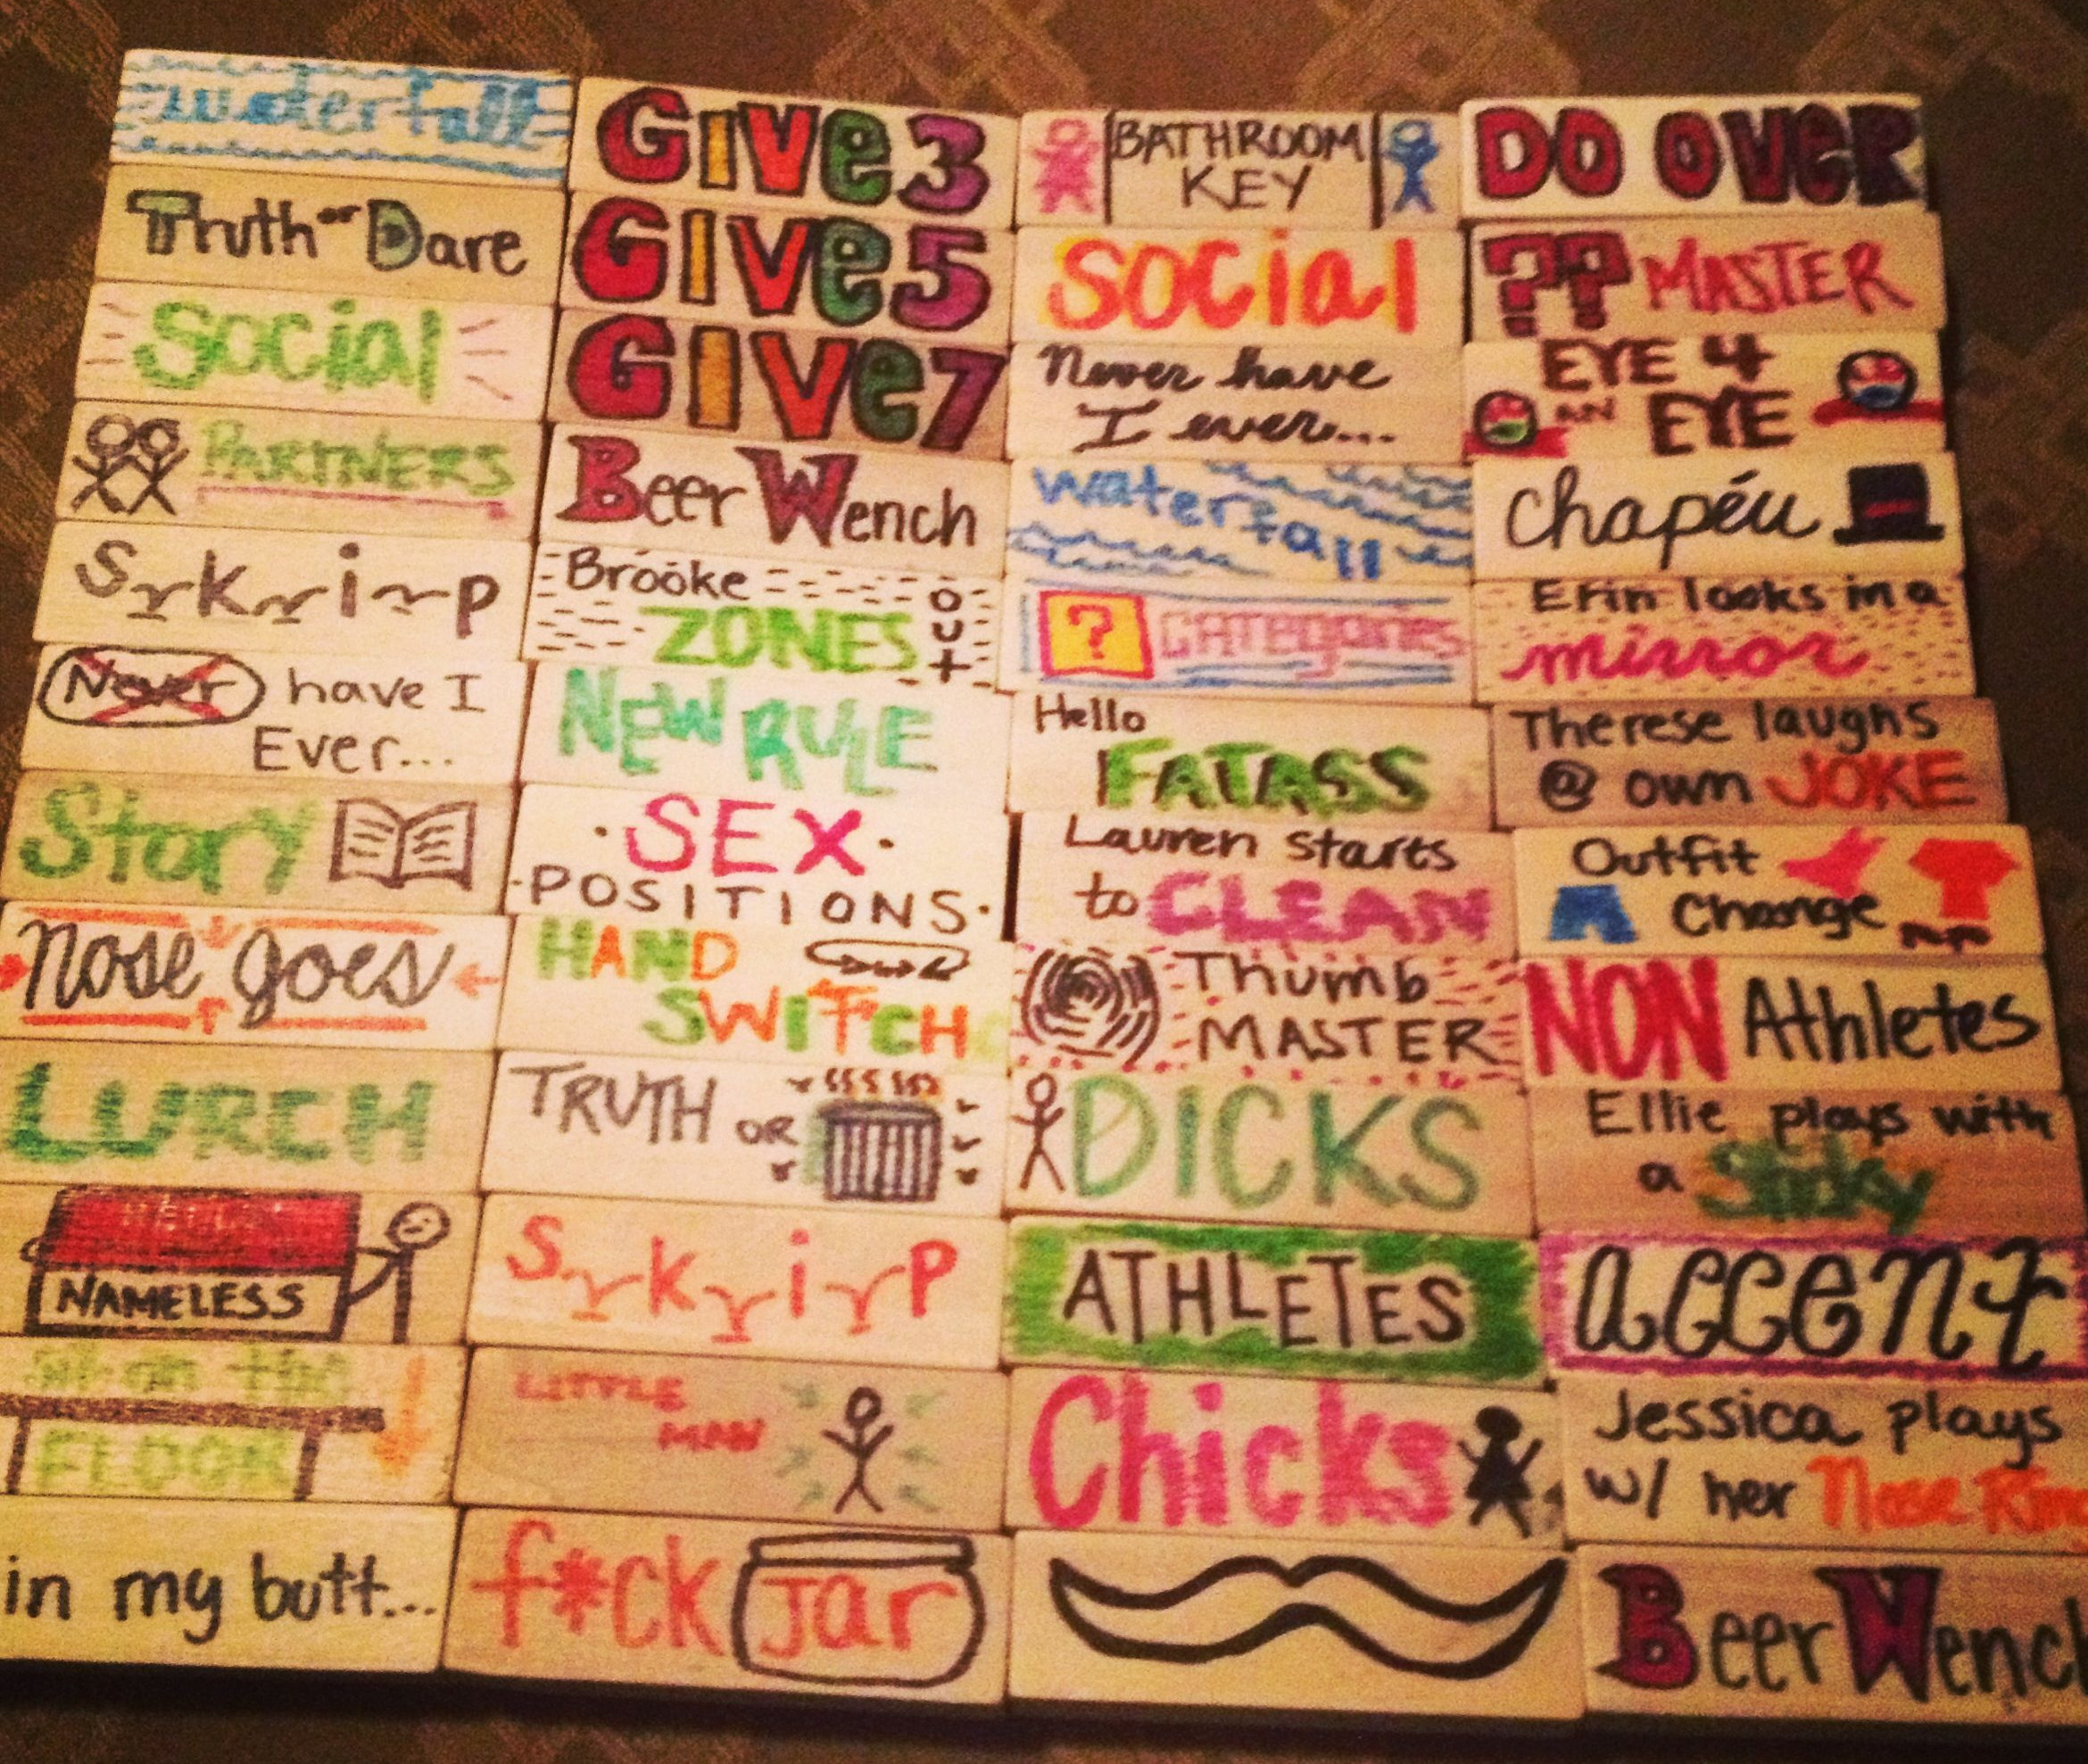 waterfall
Truth or Dare
Social
PARTNERS
Skip
Never have I
Ever...
Story
nose goes
LURCH
HELLO
NAMELESS
Sit on the
FLOOR
in my butt...
GIVE 3
GIVE 5
GIVE 7
Beer Wench
Brooke
ZONES out
NEW RULE
SEX
POSITIONS
HAND
SWITCH
TRUTH OR
Skip
LITTLE
MAN
f*ck Jar
BATHROOM
KEY
Social
Never have
I ever...
waterfall
? CATEGORIES
Hello
FATASS
Lauren starts
to CLEAN
Thumb
MASTER
DICKS
ATHLETES
Chicks
DO OVER
?? MASTER
EYE 4
AN EYE
Chapéu
Erin looks in a
mirror
Therese laughs
@ own JOKE
Outfit
Change
NON Athletes
Ellie plays with
a Sticky
accent
Jessica plays
w/ her Nose Ring
Beer Wench